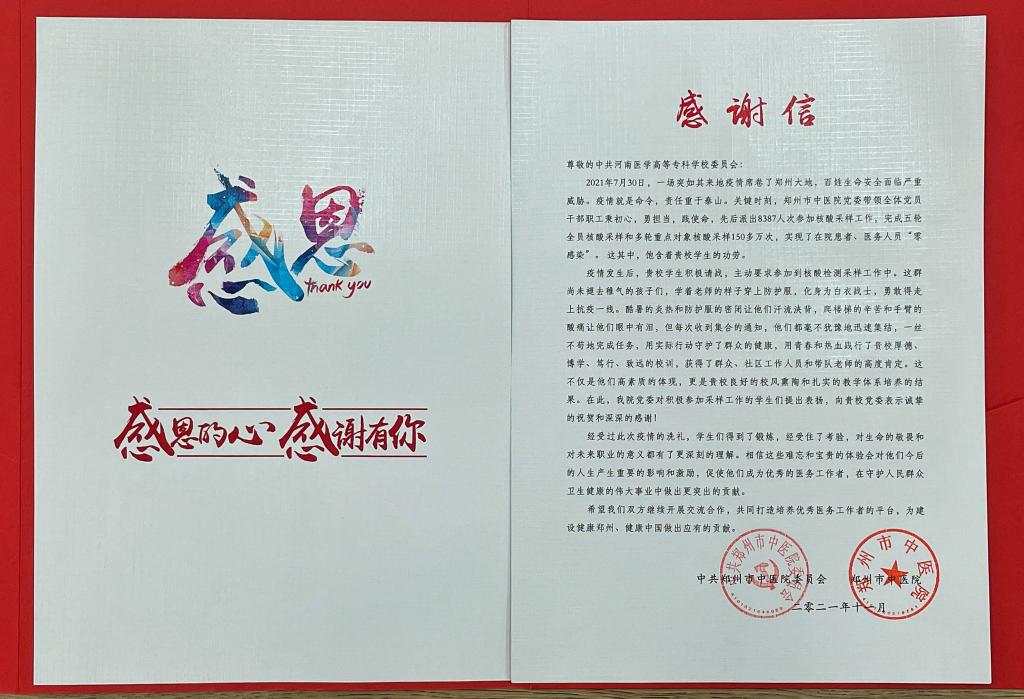 感恩
thank you
感恩的心 感谢有你
感谢信
尊敬的中共河南医学高等专科学校委员会：
2021年7月30日，一场突如其来地疫情席卷了郑州大地，百姓生命安全面临严重
威胁。疫情就是命令，责任重于泰山。关键时刻，郑州市中医院党委带领全体党员
干部职工秉初心，勇担当，践使命，先后派出8387人次参加核酸采样工作，完成五轮
全员核酸采样和多轮重点对象核酸采样150多万次，实现了在院患者、医务人员“零
感染”。这其中，饱含着贵校学生的功劳。
疫情发生后，贵校学生积极请战，主动要求参加到核酸检测采样工作中。这群
尚未褪去稚气的孩子们，学着老师的样子穿上防护服，化身为白衣战士，勇敢得走
上抗疫一线。酷暑的炎热和防护服的密闭让他们汗流浃背，爬楼梯的辛苦和手臂的
酸痛让他们眼中有泪，但每次收到集合的通知，他们都毫不犹豫地迅速集结，一丝
不苟地完成任务，用实际行动守护了群众的健康，用青春和热血践行了贵校厚德、
博学、笃行、致远的校训，获得了群众、社区工作人员和带队老师的高度肯定。这
不仅是他们高素质的体现，更是贵校良好的校风熏陶和扎实的教学体系培养的结
果。在此，我院党委对积极参加采样工作的学生们提出表扬，向贵校党委表示诚挚
的祝贺和深深的感谢！
经受过此次疫情的洗礼，学生们得到了锻炼，经受住了考验，对生命的敬畏和
对未来职业的意义都有了更深刻的理解。相信这些难忘和宝贵的体验会对他们今后
的人生产生重要的影响和激励，促使他们成为优秀的医务工作者，在守护人民群众
卫生健康的伟大事业中做出更突出的贡献。
希望我们双方继续开展交流合作，共同打造培养优秀医务工作者的平台，为建
设健康郑州、健康中国做出应有的贡献。
中共郑州市中医院委员会 郑州市中医院
二零二一年十一月
中共郑州市中医院委员会
郑州市中医院